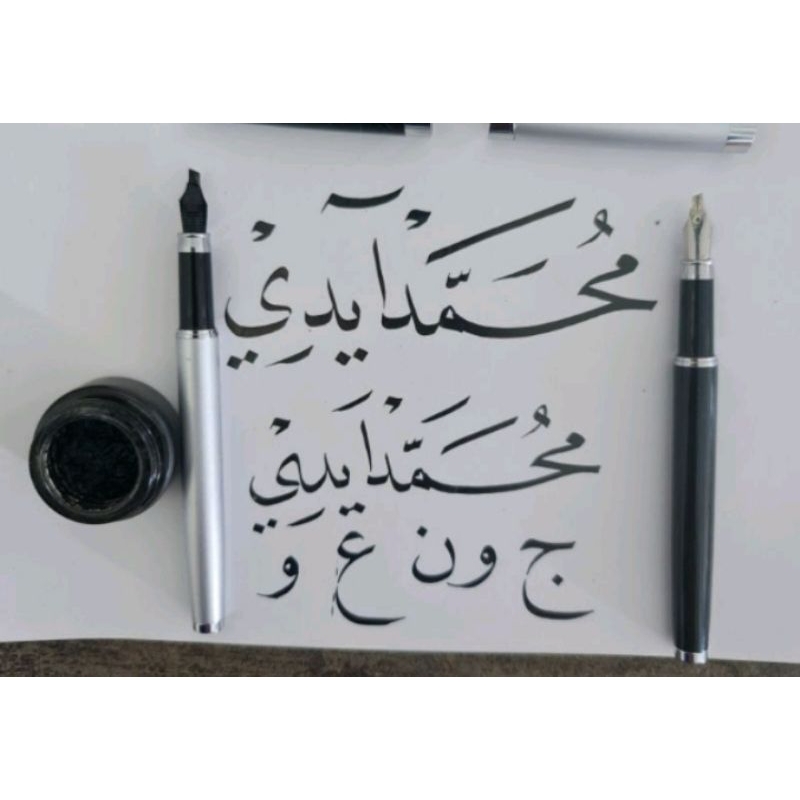 مُحَمَّدْ آيدِيْ
مُحَمَّدْ اَيدِيْ
ج و ن ع و